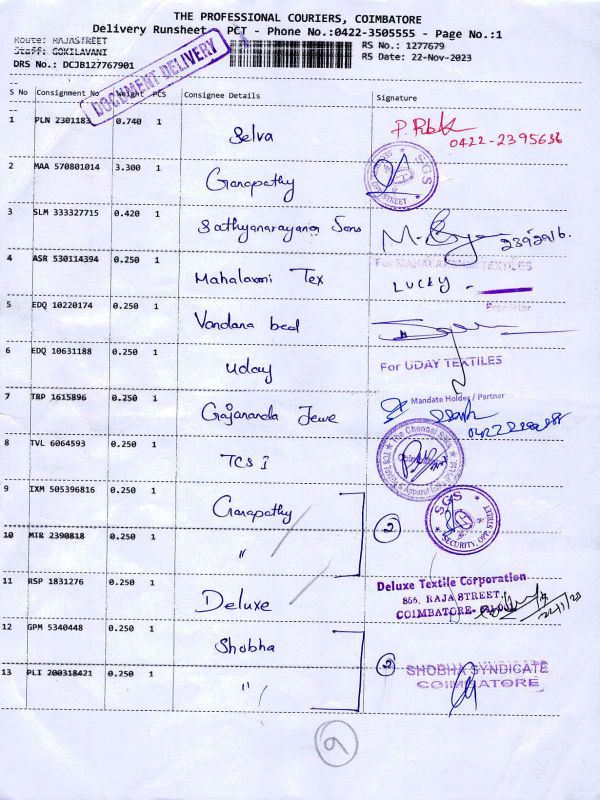 THE PROFESSIONAL COURIERS, COIMBATORE
Delivery Runsheet - PCT - Phone No.:0422-3505555 - Page No.:1
Route: RAJASTREET
Staff: GOKILAVANI
RS No.: 1277679
DRS No.: DCJB127767901
RS Date: 22-Nov-2023
DOCUMENT DELIVERY
S No Consignment No Weight PCS Consignee Details Signature
1 PLN 2301183 0.740 1 Selva 0422-2395636
2 MAA 570801014 3.300 1 Ganapathy SGS
3 SLM 333327715 0.420 1 Sathyanarayana Sons
4 ASR 530114394 0.250 1 Mahalaxmi Tex For MAHALAKSHMI TEXTILES
LUCKY
Proprietor
5 EDQ 10220174 0.250 1 Vandana bed
6 EDQ 10631188 0.250 1 Uday For UDAY TEXTILES
Mandate Holder / Partner
7 TRP 1615896 0.250 1 Gajananda Jewe
8 TVL 6064593 0.250 1 TCS I The Chennai Silks
9 IXM 505396816 0.250 1 Ganapathy 2 SGS SECURITY, OPP. STREET
10 MTR 2390818 0.250 1 "
11 RSP 1831276 0.250 1 Deluxe Deluxe Textile Corporation
865, RAJA STREET,
COIMBATORE-
22/11/23
12 GPM 5340448 0.250 1 Shobha
13 PLI 200318421 0.250 1 " 2 SHOBHA SYNDICATE
COIMBATORE
9